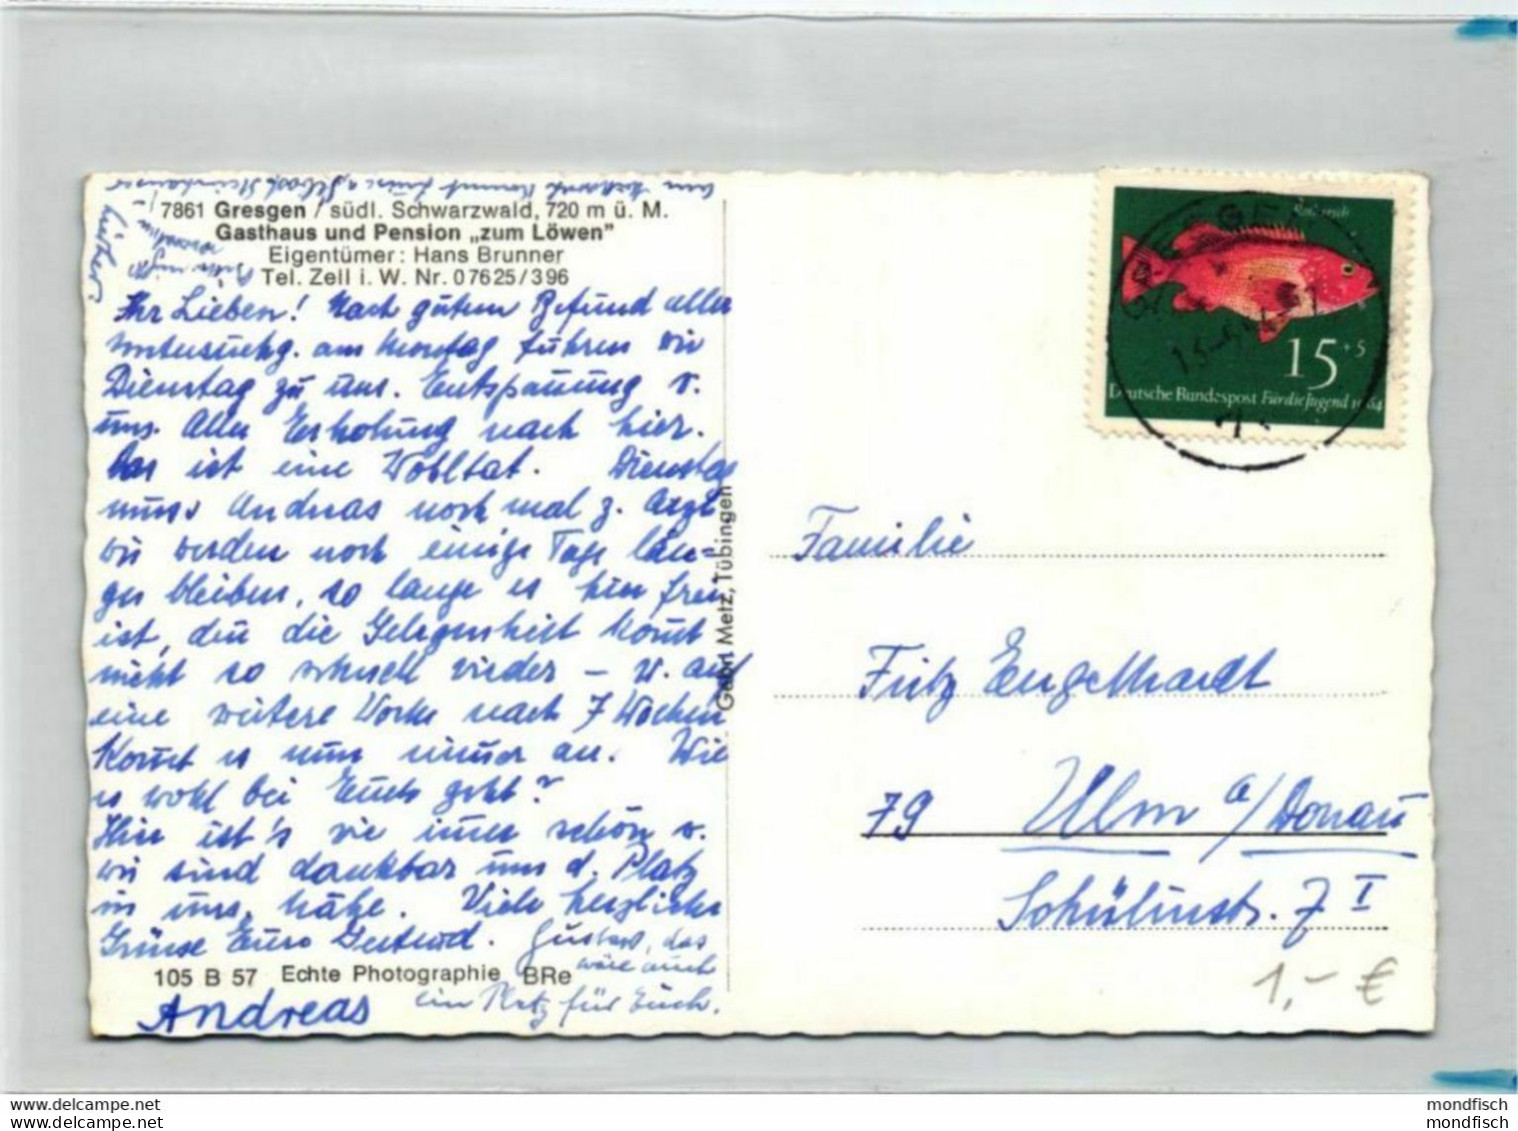 7861 Gresgen / südl. Schwarzwald, 720 m ü. M.
Gasthaus und Pension „zum Löwen”
Eigentümer: Hans Brunner
Tel. Zell i. W. Nr. 07625/396
Ihr Lieben! Nach gutem Befund aller
Untersuchg. am Montag fuhren wir
Dienstag zu uns. Entspannung u.
uns. Aller Erholung nach hier.
Das ist eine Wohltat. Dienstag
muss Andreas noch mal z. Arzt
wir werden noch einige Tage län-
ger bleiben, so lange es hier frei
ist, den die Gelegenheit komt
nicht so schnell wieder – u. auf
eine weitere Woche nach 7 Wochen
komt es nun nimer an. Wie
es wohl bei Euch geht?
Hier ist's wie imer schön u.
wir sind dankbar um d. Platz
in uns. Nähe. Viele herzliche
Grüsse Eure Gertrud. Gustav, das
wäre auch
ein Platz für Euch.
Andreas
105 B 57 Echte Photographie BRe
Gebr. Metz, Tübingen
15 +5
Deutsche Bundespost Für die Jugend 1964
Familie
Fritz Engelhardt
79 Ulm a/Donau
Schülinstr. 7 I
1,- €
mondfisch
mondfisch
mondfisch
mondfisch